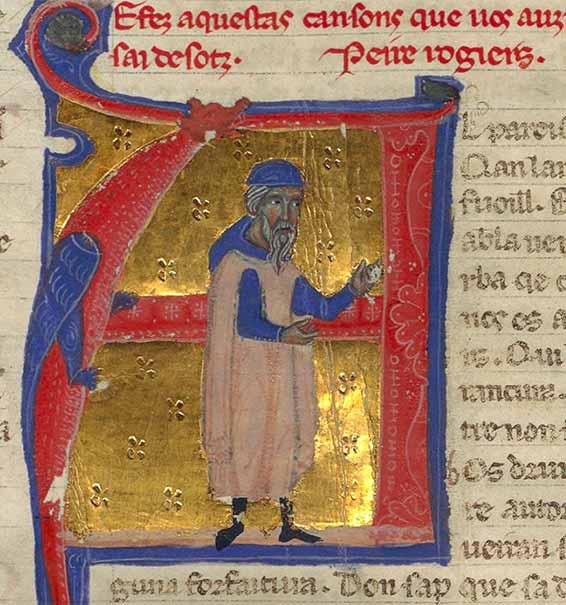 Efez aquestas cansons que uos auz
sai desotz. Peire rogiers.
Qan lan
fuoill.
abla uer
rba qe
nos es a
is. Qui
rancura.
tre non
Os drui
re autor
uenran
guna forfaitura. Don sap que sa d